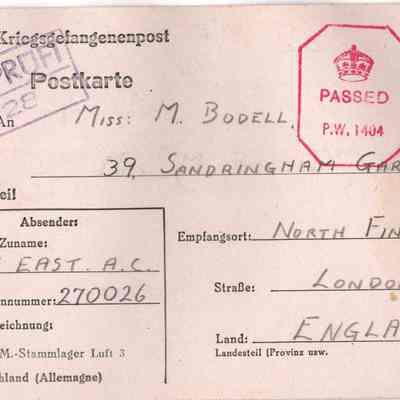 Kriegsgefangenenpost
PRÜFT
28
Postkarte
PASSED
P.W. 1404
An MISS: M. BODELL,
39, SANDRINGHAM GAR
eil
Absender:
Zuname:
EAST. A.C.
Empfangsort: NORTH FIN
nnummer: 270026
Straße: LONDO
eichnung:
M.-Stammlager Luft 3
Land: ENGLA
Landesteil (Provinz usw.
hland (Allemagne)